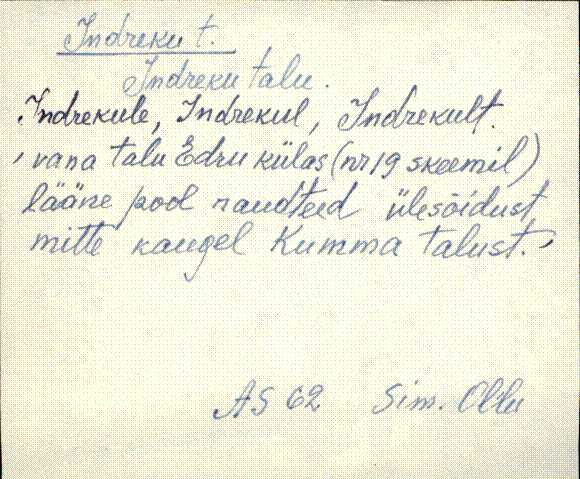 Indreku t.
Indreku talu.
Indrekule, Indrekul, Indrekult.
, vana talu Edru külas (nr 19 skeemil)
lääne pool raudteed ülesõidust
mitte kaugel Kumma talust.,
AS 62 Sim. Ollu